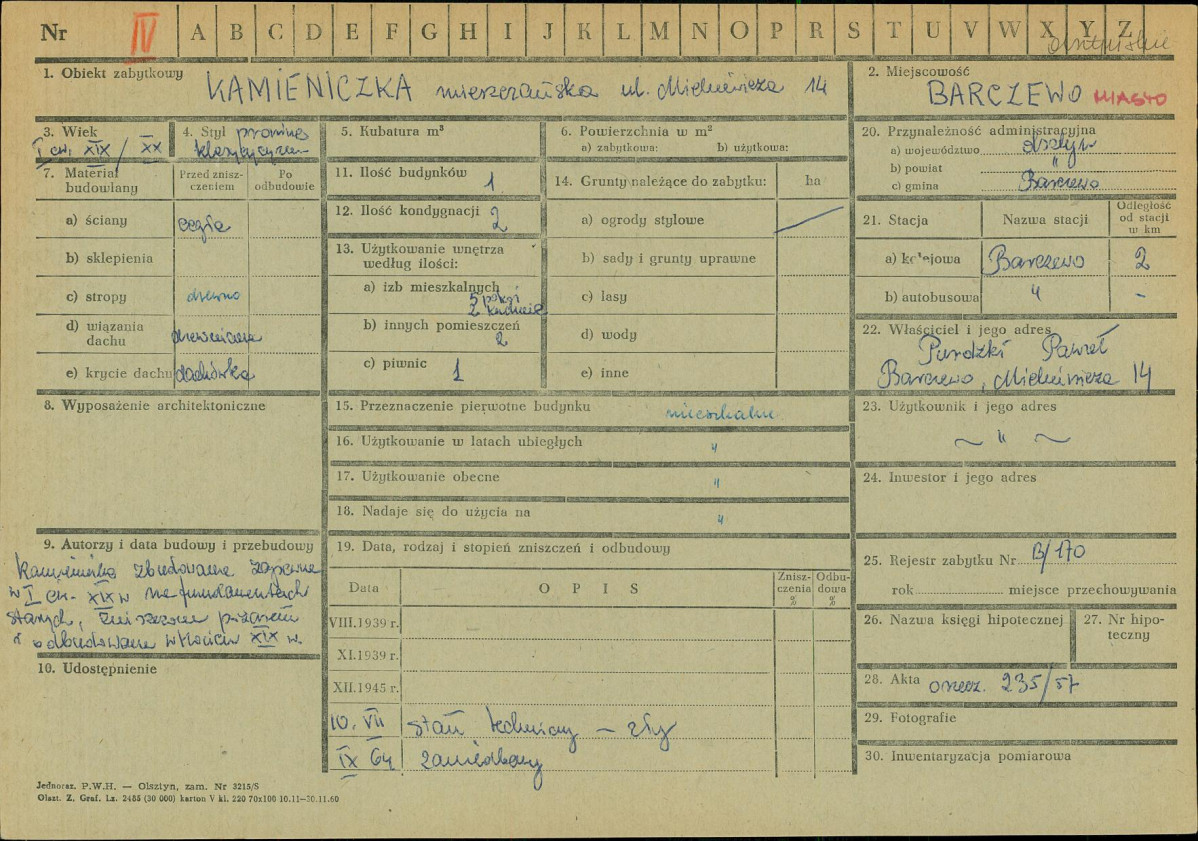 Nr IV A B C D E F G H I J K L M N O P R S T U V W X Y Z
1. Obiekt zabytkowy KAMIENICZKA mieszczańska ul. Mickiewicza 14
2. Miejscowość
BARCZEWO MIASTO
3. Wiek
I ćw. XIX / XX
4. Styl
5. Kubatura m³
6. Powierzchnia w m²
a) zabytkowa: b) użytkowa:
7. Materiał budowlany
Przed znisz-
czeniem
Po
odbudowie
a) ściany cegła
b) sklepienia
c) stropy drewno
d) wiązania
dachu drewniane
e) krycie dachu dachówka
8. Wyposażenie architektoniczne
9. Autorzy i data budowy i przebudowy
Kamieniczka zbudowana zapewne
w I ćw. XIX w na fundamentach
starych, zniszczona pożarem
i odbudowana w końcu XIX w.
10. Udostępnienie
11. Ilość budynków 1
12. Ilość kondygnacji 2
13. Użytkowanie wnętrza
według ilości:
a) izb mieszkalnych
5 pokoi
2 kuchnie
b) innych pomieszczeń
2
c) piwnic 1
14. Grunty należące do zabytku: ha
a) ogrody stylowe
b) sady i grunty uprawne
c) lasy
d) wody
e) inne
15. Przeznaczenie pierwotne budynku mieszkalne
16. Użytkowanie w latach ubiegłych "
17. Użytkowanie obecne "
18. Nadaje się do użycia na "
19. Data, rodzaj i stopień zniszczeń i odbudowy
Data O P I S
Znisz-
czenia
%
Odbu-
dowa
%
VIII.1939 r.
XI.1939 r.
XII.1945 r.
10. VII stan techniczny – zły
IX 64 zaniedbany
20. Przynależność administracyjna
a) województwo Olsztyn
b) powiat "
c) gmina Barczewo
21. Stacja Nazwa stacji
Odległość
od stacji
w km
a) kolejowa Barczewo 2
b) autobusowa " -
22. Właściciel i jego adres
Purdzki Paweł
Barczewo, Mickiewicza 14
23. Użytkownik i jego adres
~ " ~
24. Inwestor i jego adres
25. Rejestr zabytku Nr B/170
rok miejsce przechowywania
26. Nazwa księgi hipotecznej
27. Nr hipo-
teczny
28. Akta orzecz. 235/57
29. Fotografie
30. Inwentaryzacja pomiarowa
Jednoraz. P.W.H. — Olsztyn, zam. Nr 3215/S
Olszt. Z. Graf. Lz. 2485 (30 000) karton V kl. 220 70x100 10.11—30.11.60